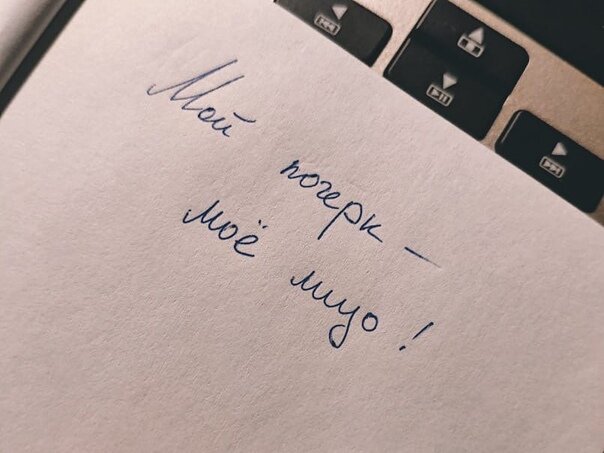 Мой почерк –
моё лицо!